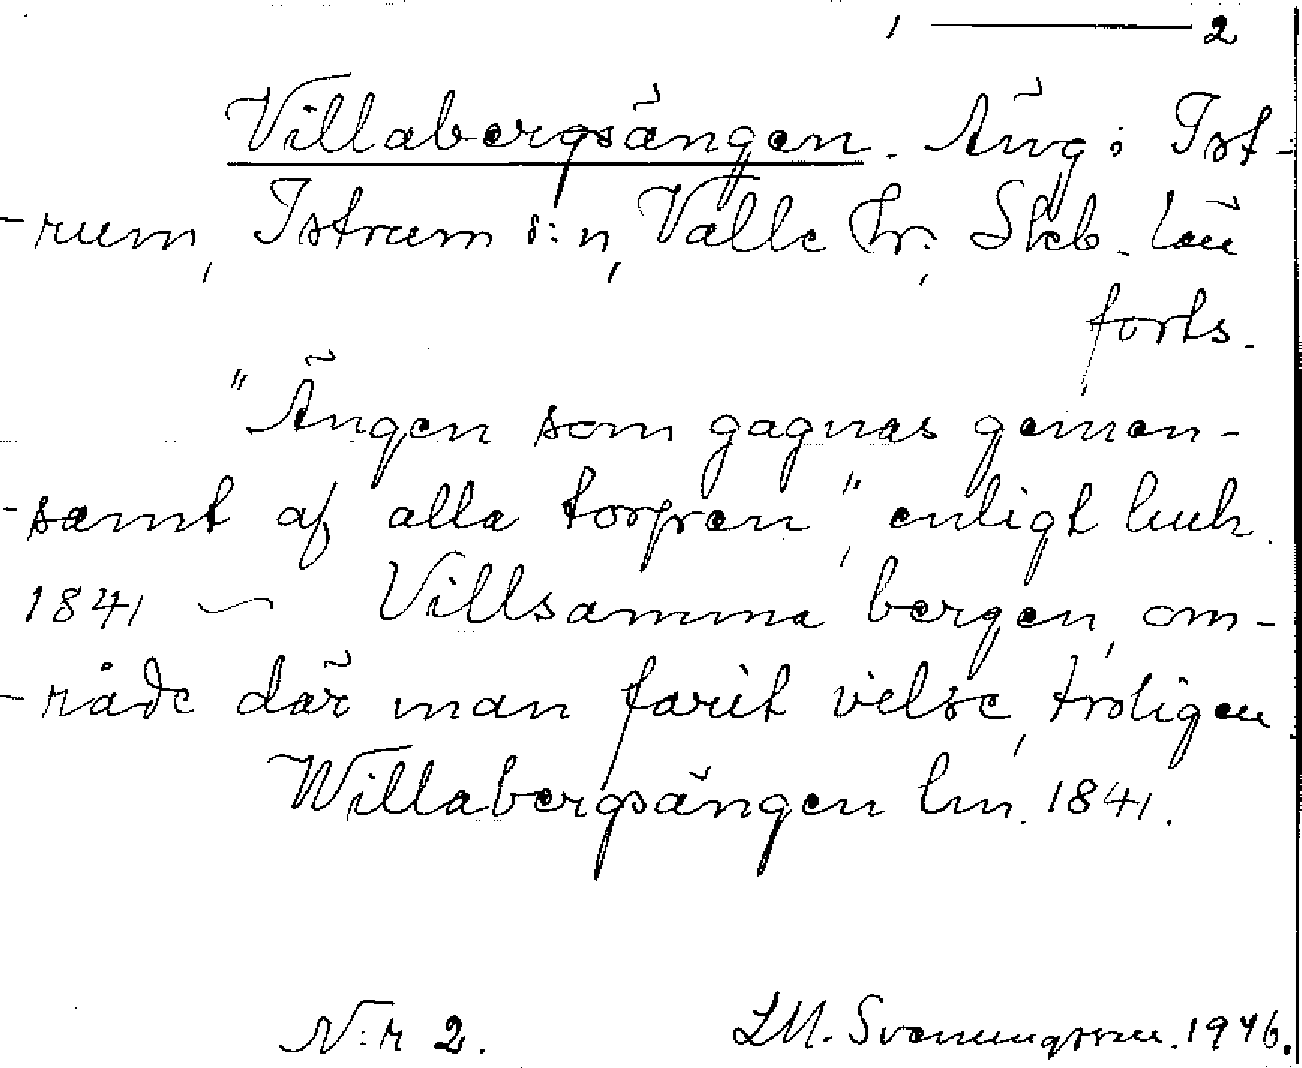 1 — 2
Villabergsängen. Äng i Ist-
-rum, Istrum s:n, Valle hr, Skb. län
forts.
"Ängen som gagnas gemen-
-samt af alla torpren", enligt lmh.
1841 ~ Villsamma bergen, om-
-råde där man farit vilse, troligen
Willabergsängen lm. 1841.
N:r 2. LM. Svenungsson. 1946.